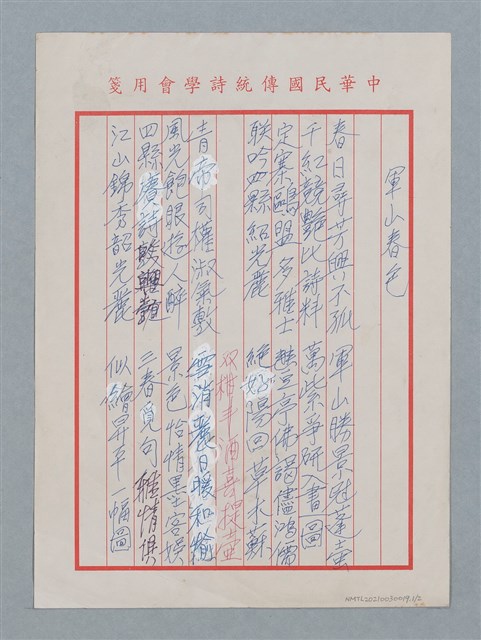 中華民國傳統詩學會用箋
軍山春色
春日尋芳興不孤 軍山勝景冠蓬壺
千紅競艷比詩料 萬紫爭研入畫圖
定寨鷗盟多雅士 亭佛謁儘鴻儒
聯吟四縣紹光麗 絕好陽回草木蘇
双柑斗酒喜提壺
青帝司權淑氣敷 雪消麗日暖和愉
風光飽眼遊人醉 景色怡情墨客娛
四縣賡詩 三春覓句 情俱
江山錦秀韶光麗 似繪昇平一幅圖
NMTL20210050019.1/2